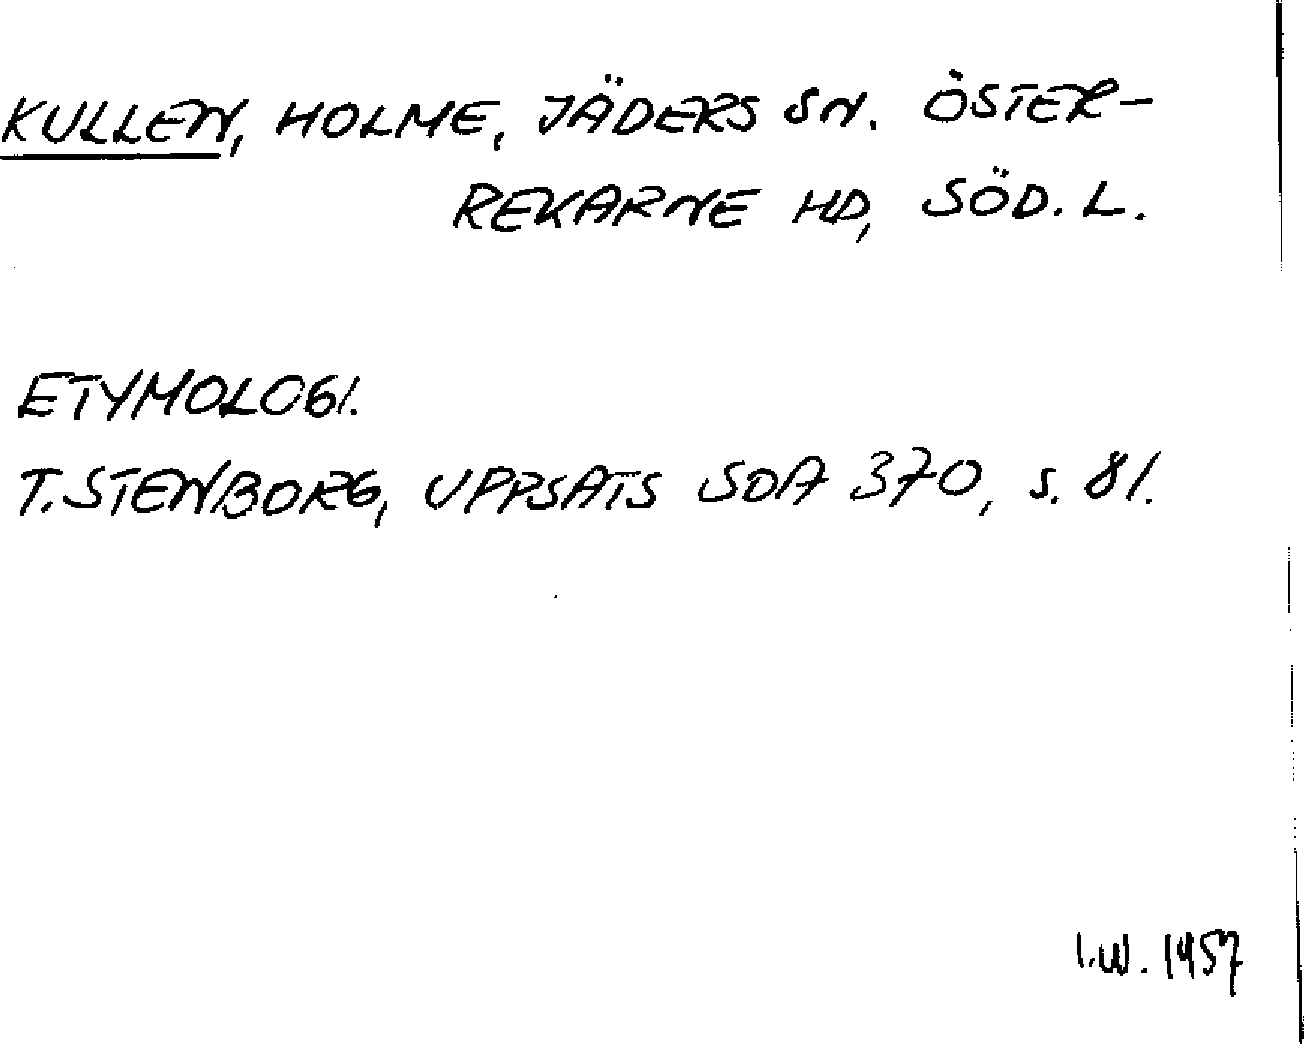 KULLEN, HOLME, JÄDERS SN. ÖSTER-
REKARNE HD, SÖD. L.
ETYMOLOGI.
T. STENBORG, UPPSATS SOA 370, s. 81.
I.W. 1957